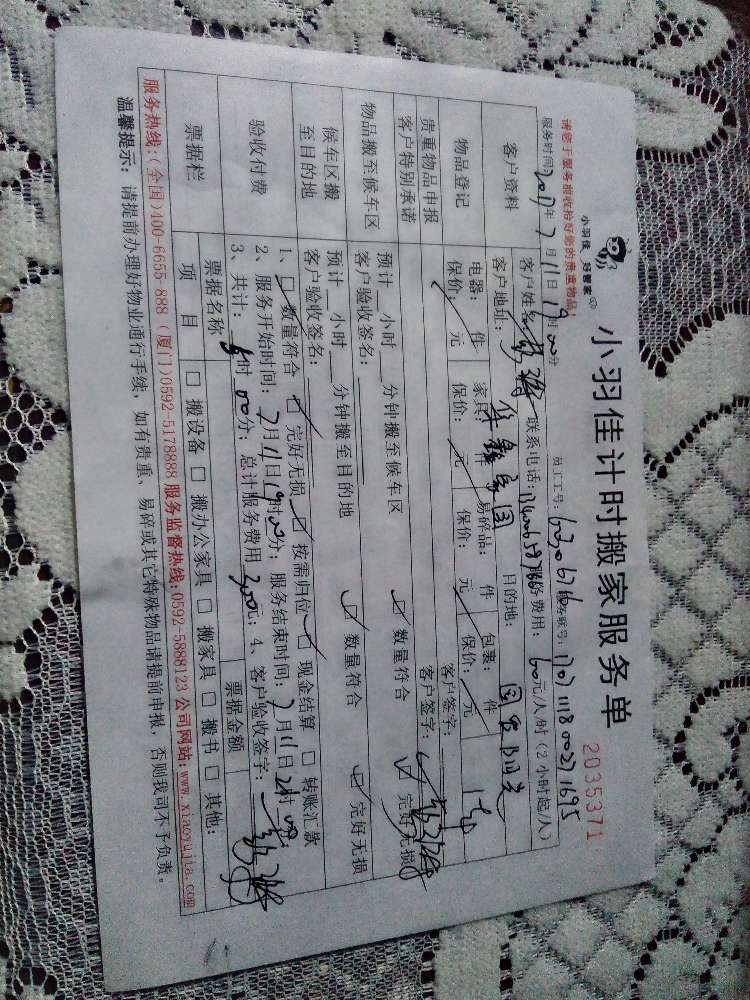 小羽佳 好管家
小羽佳计时搬家服务单
2035371
请您于服务前收拾好您的贵重物品!
员工工号:
服务时间 2017年7月11日19时00分
客户资料
客户姓名: 联系电话: 服务费用:60元/人/时(2小时起/人)
客户地址: 目的地:
物品登记
电器: 件 家具: 易碎品: 件 包裹: 件
保价: 元 保价: 元 保价: 元 保价: 元
贵重物品申报 客户签字:
客户特别承诺 客户签字:
物品搬至候车区
预计 小时 分钟搬至候车区 ☑数量符合 ☑完好无损
客户验收签名:
候车区搬至目的地
预计 小时 分钟搬至目的地 ☑数量符合 ☑完好无损
客户验收签名:
验收付费
1、☑数量符合 ☑完好无损 ☑按需归位 ☑现金结算 □转账汇款
2、服务开始时间:7月11日19时00分;服务结束时间:7月11日
3、共计: 时00分;总计服务费用 元;4、客户验收签字:
票据栏
票据名称 票据金额
项目 □搬设备 □搬办公家具 □搬家具 □搬书 □其他:
服务热线:(全国)400-6655-888 (厦门)0592-5178888 服务监督热线:0592-5888123 公司网站:www.xiaoyujia.com
温馨提示:请提前办理好物业通行手续,如有贵重、易碎或其它特殊物品请提前申报,否则我司不予负责。